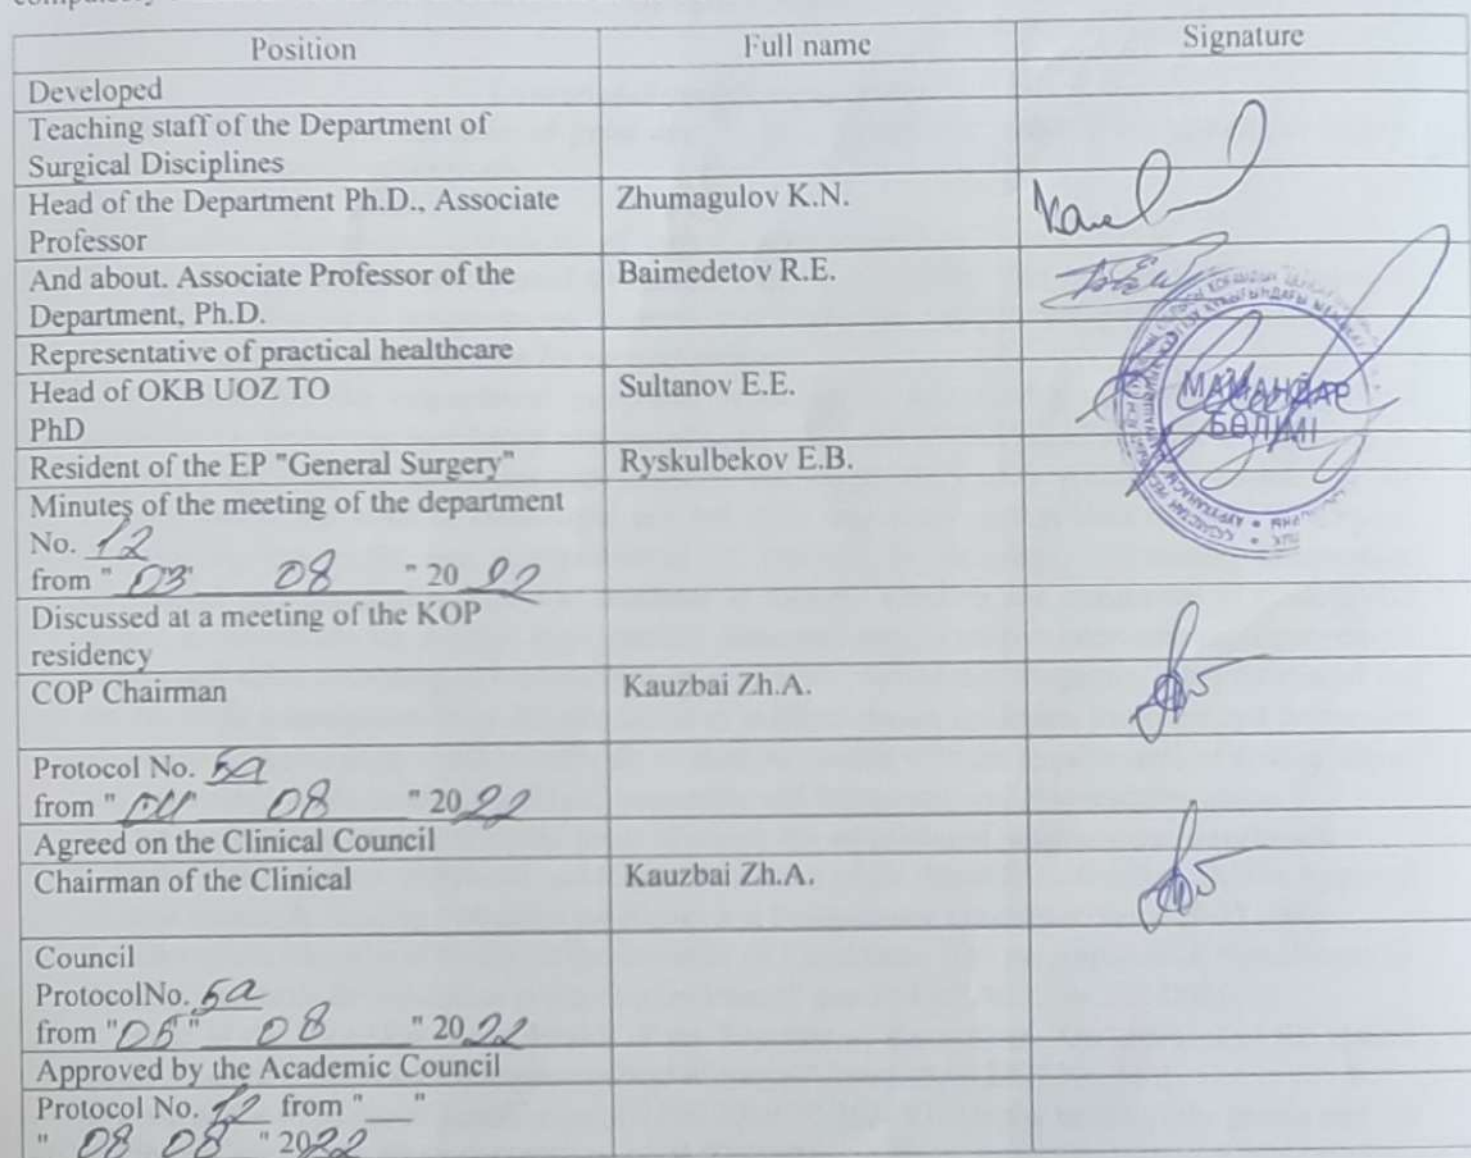 Position Full name Signature
Developed
Teaching staff of the Department of
Surgical Disciplines
Head of the Department Ph.D., Associate Zhumagulov K.N.
Professor
And about. Associate Professor of the Baimedetov R.E.
Department, Ph.D.
Representative of practical healthcare
Head of OKB UOZ TO Sultanov E.E.
PhD
МАМАНДАР
БӨЛІМІ
Resident of the EP "General Surgery" Ryskulbekov E.B.
Minutes of the meeting of the department
No. 12
from " 03 " 08 " 20 22
Discussed at a meeting of the KOP
residency
COP Chairman Kauzbai Zh.A.
Protocol No. 5a
from " 04 " 08 " 20 22
Agreed on the Clinical Council
Chairman of the Clinical Kauzbai Zh.A.
Council
ProtocolNo. 5a
from "05" 08 " 20 22
Approved by the Academic Council
Protocol No. 12 from "__"
" 08 08 " 2022